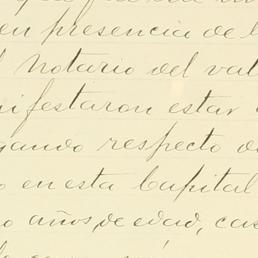 en presencia de l
l notario del val
ifestaron estar
gando respecto d
o en esta Capital
o años, de edad, cas